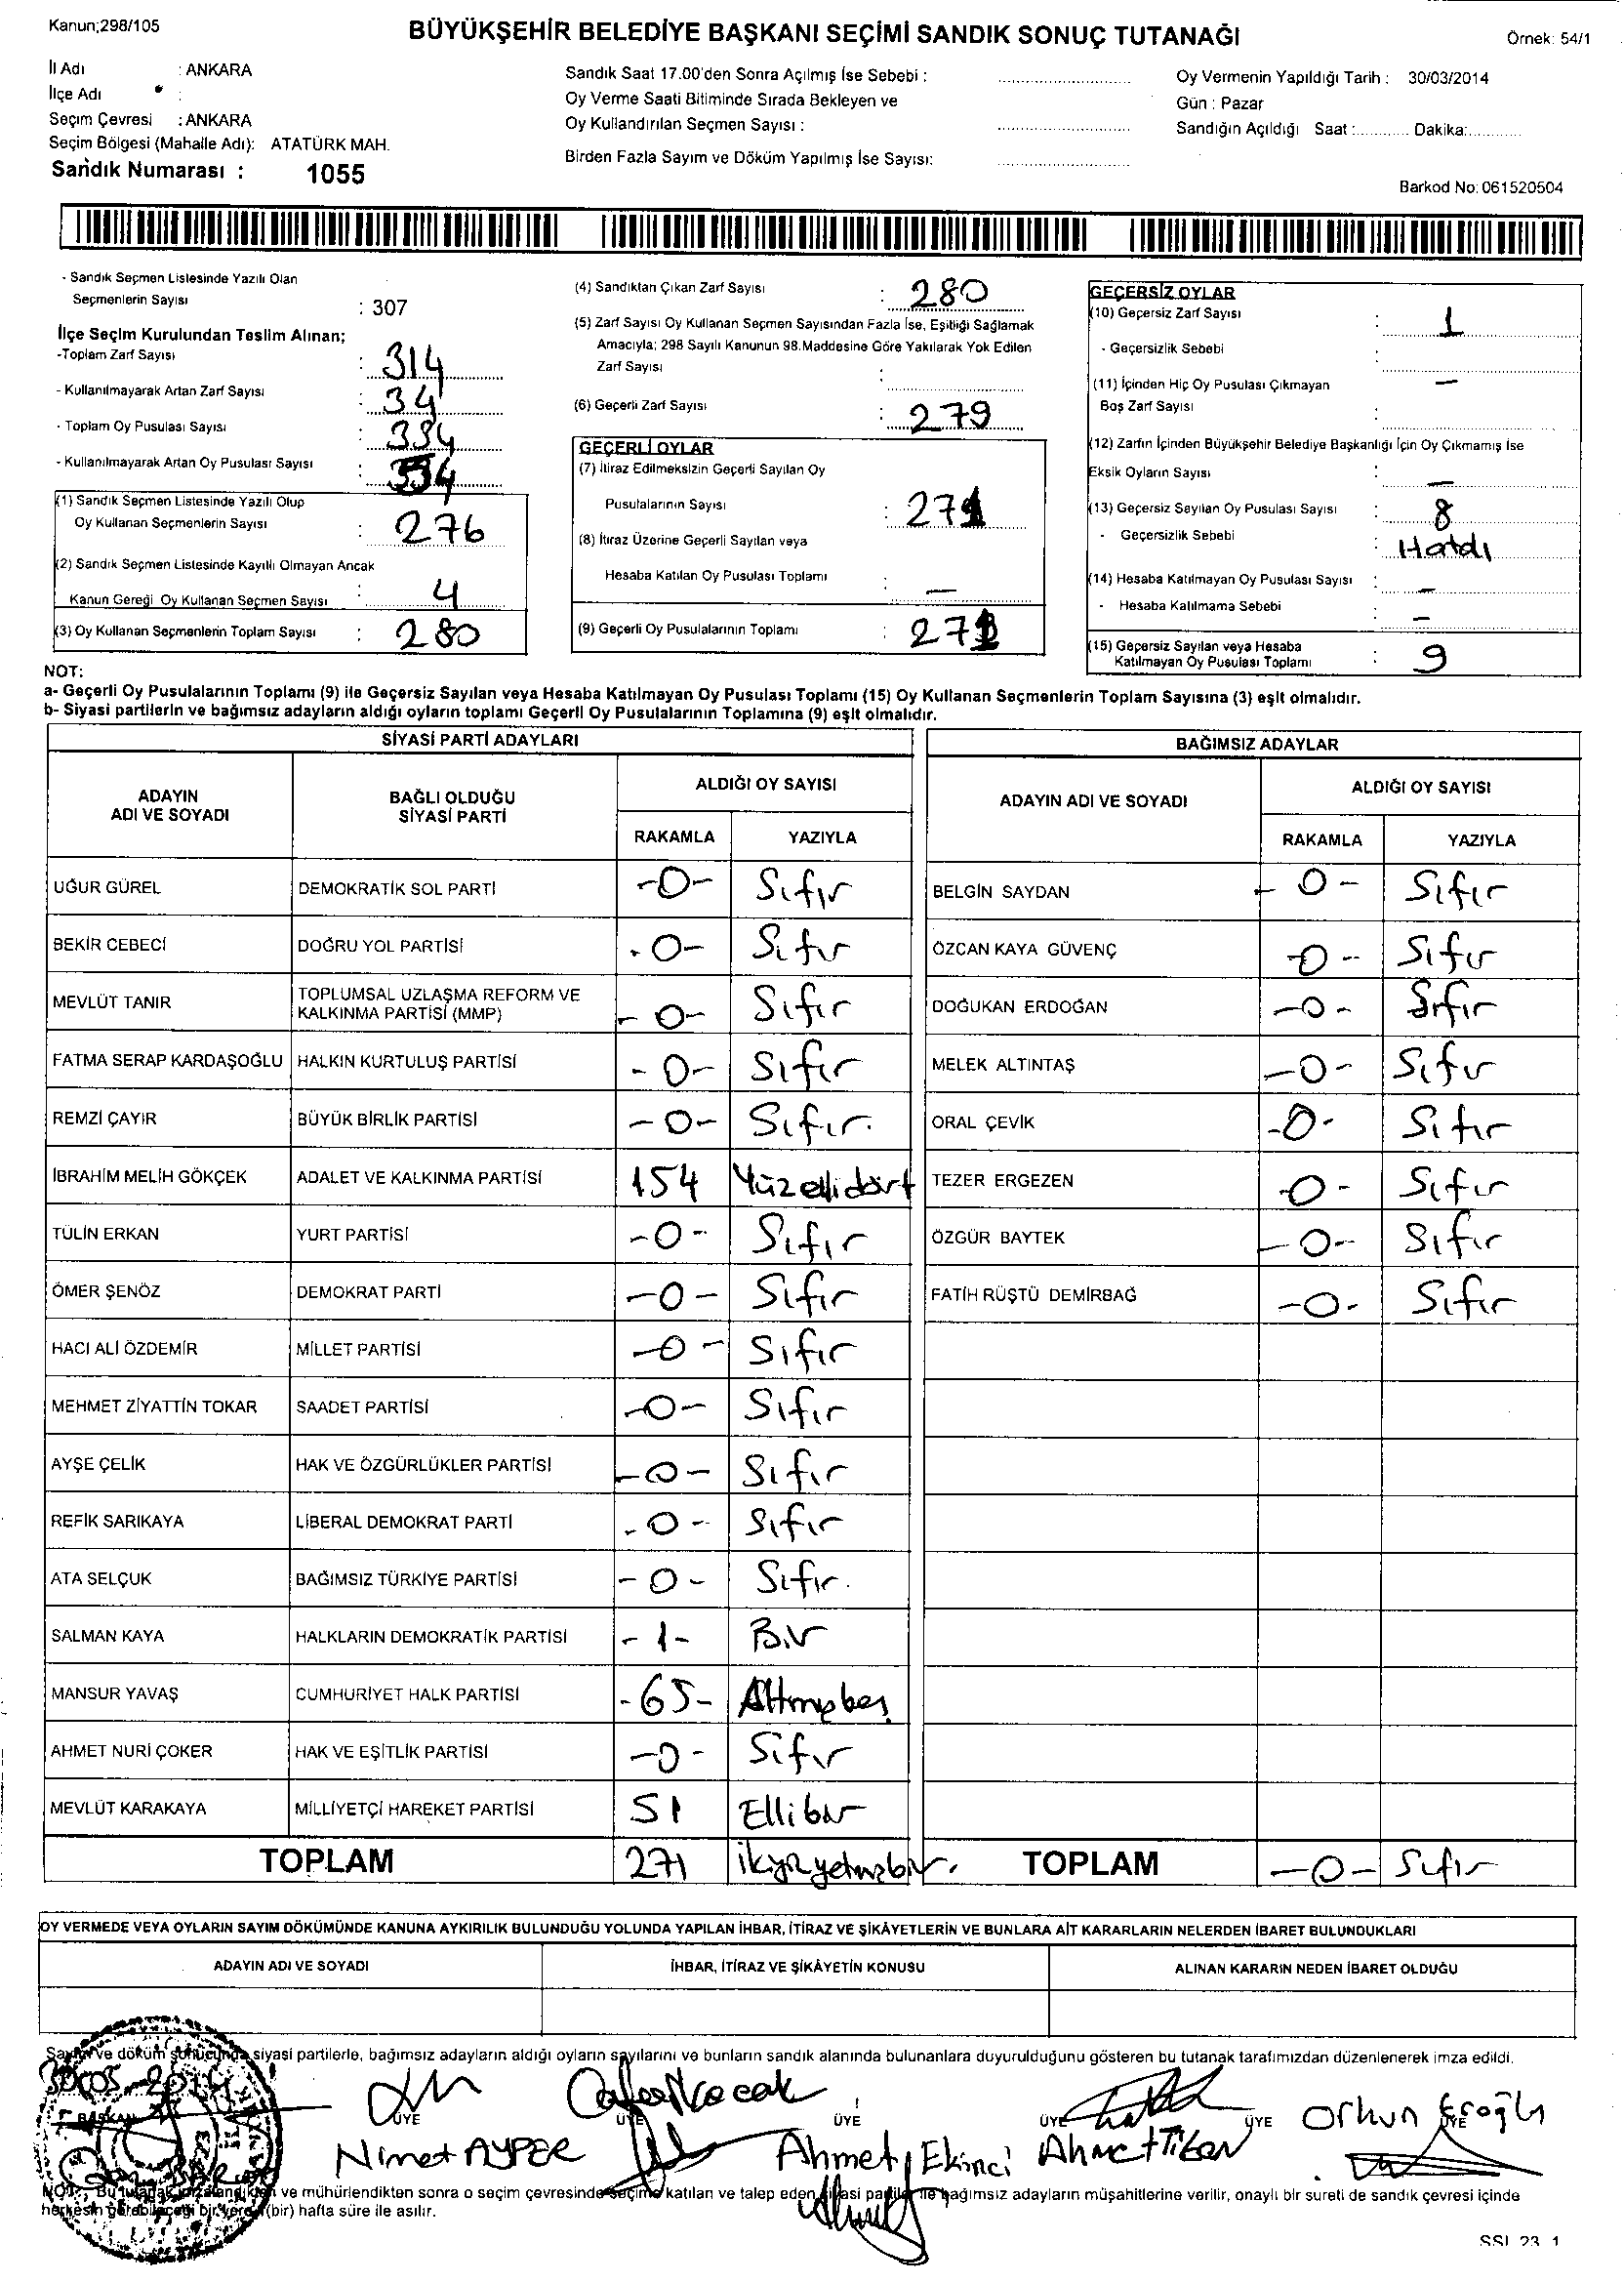 Kanun;298/105
BÜYÜKŞEHİR BELEDİYE BAŞKANI SEÇİMİ SANDIK SONUÇ TUTANAĞI
Örnek: 54/1
İl Adı : ANKARA
İlçe Adı :
Seçim Çevresi : ANKARA
Seçim Bölgesi (Mahalle Adı): ATATÜRK MAH.
Sandık Numarası : 1055
Sandık Saat 17.00'den Sonra Açılmış İse Sebebi :
Oy Verme Saati Bitiminde Sırada Bekleyen ve
Oy Kullandırılan Seçmen Sayısı :
Birden Fazla Sayım ve Döküm Yapılmış İse Sayısı:
Oy Vermenin Yapıldığı Tarih : 30/03/2014
Gün : Pazar
Sandığın Açıldığı Saat :............ Dakika:............
Barkod No: 061520504
- Sandık Seçmen Listesinde Yazılı Olan
Seçmenlerin Sayısı : 307
İlçe Seçim Kurulundan Teslim Alınan;
-Toplam Zarf Sayısı : 314
- Kullanılmayarak Artan Zarf Sayısı : 34
- Toplam Oy Pusulası Sayısı :
- Kullanılmayarak Artan Oy Pusulası Sayısı :
(1) Sandık Seçmen Listesinde Yazılı Olup
Oy Kullanan Seçmenlerin Sayısı : 276
(2) Sandık Seçmen Listesinde Kayıtlı Olmayan Ancak
Kanun Gereği Oy Kullanan Seçmen Sayısı : 4
(3) Oy Kullanan Seçmenlerin Toplam Sayısı : 280
(4) Sandıktan Çıkan Zarf Sayısı : 280
(5) Zarf Sayısı Oy Kullanan Seçmen Sayısından Fazla İse, Eşitliği Sağlamak
Amacıyla; 298 Sayılı Kanunun 98.Maddesine Göre Yakılarak Yok Edilen
Zarf Sayısı :
(6) Geçerli Zarf Sayısı : 279
GEÇERLİ OYLAR
(7) İtiraz Edilmeksizin Geçerli Sayılan Oy
Pusulalarının Sayısı : 271
(8) İtiraz Üzerine Geçerli Sayılan veya
Hesaba Katılan Oy Pusulası Toplamı : —
(9) Geçerli Oy Pusulalarının Toplamı : 271
GEÇERSİZ OYLAR
(10) Geçersiz Zarf Sayısı : 1
- Geçersizlik Sebebi :
(11) İçinden Hiç Oy Pusulası Çıkmayan —
Boş Zarf Sayısı :
(12) Zarfın İçinden Büyükşehir Belediye Başkanlığı İçin Oy Çıkmamış İse
Eksik Oyların Sayısı : —
(13) Geçersiz Sayılan Oy Pusulası Sayısı : 8
- Geçersizlik Sebebi : Hatalı
(14) Hesaba Katılmayan Oy Pusulası Sayısı : —
- Hesaba Katılmama Sebebi : —
(15) Geçersiz Sayılan veya Hesaba
Katılmayan Oy Pusulası Toplamı : 9
NOT:
a- Geçerli Oy Pusulalarının Toplamı (9) ile Geçersiz Sayılan veya Hesaba Katılmayan Oy Pusulası Toplamı (15) Oy Kullanan Seçmenlerin Toplam Sayısına (3) eşit olmalıdır.
b- Siyasi partilerin ve bağımsız adayların aldığı oyların toplamı Geçerli Oy Pusulalarının Toplamına (9) eşit olmalıdır.
SİYASİ PARTİ ADAYLARI
ADAYIN ADI VE SOYADI BAĞLI OLDUĞU SİYASİ PARTİ ALDIĞI OY SAYISI
RAKAMLA YAZIYLA
UĞUR GÜREL DEMOKRATİK SOL PARTİ -0- Sıfır
BEKİR CEBECİ DOĞRU YOL PARTİSİ -0- Sıfır
MEVLÜT TANIR TOPLUMSAL UZLAŞMA REFORM VE KALKINMA PARTİSİ (MMP) -0- Sıfır
FATMA SERAP KARDAŞOĞLU HALKIN KURTULUŞ PARTİSİ -0- Sıfır
REMZİ ÇAYIR BÜYÜK BİRLİK PARTİSİ -0- Sıfır.
İBRAHİM MELİH GÖKÇEK ADALET VE KALKINMA PARTİSİ 154 Yüzellidört
TÜLİN ERKAN YURT PARTİSİ -0- Sıfır
ÖMER ŞENÖZ DEMOKRAT PARTİ -0- Sıfır
HACI ALİ ÖZDEMİR MİLLET PARTİSİ -0- Sıfır
MEHMET ZİYATTİN TOKAR SAADET PARTİSİ -0- Sıfır
AYŞE ÇELİK HAK VE ÖZGÜRLÜKLER PARTİSİ -0- Sıfır
REFİK SARIKAYA LİBERAL DEMOKRAT PARTİ -0- Sıfır
ATA SELÇUK BAĞIMSIZ TÜRKİYE PARTİSİ -0- Sıfır.
SALMAN KAYA HALKLARIN DEMOKRATİK PARTİSİ -1- Bir
MANSUR YAVAŞ CUMHURİYET HALK PARTİSİ -65- Altmışbeş
AHMET NURİ ÇOKER HAK VE EŞİTLİK PARTİSİ -0- Sıfır
MEVLÜT KARAKAYA MİLLİYETÇİ HAREKET PARTİSİ 51 Ellibir
TOPLAM 271 ikiyüzyetmişbir.
BAĞIMSIZ ADAYLAR
ADAYIN ADI VE SOYADI ALDIĞI OY SAYISI
RAKAMLA YAZIYLA
BELGİN SAYDAN -0- Sıfır
ÖZCAN KAYA GÜVENÇ -0- Sıfır
DOĞUKAN ERDOĞAN -0- Sıfır
MELEK ALTINTAŞ -0- Sıfır
ORAL ÇEVİK -0- Sıfır
TEZER ERGEZEN -0- Sıfır
ÖZGÜR BAYTEK -0- Sıfır
FATİH RÜŞTÜ DEMİRBAĞ -0- Sıfır
TOPLAM -0- Sıfır
OY VERMEDE VEYA OYLARIN SAYIM DÖKÜMÜNDE KANUNA AYKIRILIK BULUNDUĞU YOLUNDA YAPILAN İHBAR, İTİRAZ VE ŞİKÂYETLERİN VE BUNLARA AİT KARARLARIN NELERDEN İBARET BULUNDUKLARI
ADAYIN ADI VE SOYADI İHBAR, İTİRAZ VE ŞİKÂYETİN KONUSU ALINAN KARARIN NEDEN İBARET OLDUĞU
Sayım ve döküm sonucunda siyasi partilerle, bağımsız adayların aldığı oyların sayılarını ve bunların sandık alanında bulunanlara duyurulduğunu gösteren bu tutanak tarafımızdan düzenlenerek imza edildi.
BAŞKAN ÜYE ÜYE ÜYE ÜYE ÜYE ÜYE
Orhun Eroğlu
Nimet AYPER Ahmet Ekinci
NOT: Bu tutanak imzalandıktan ve mühürlendikten sonra o seçim çevresinde seçime katılan ve talep eden siyasi partiler ile bağımsız adayların müşahitlerine verilir, onaylı bir sureti de sandık çevresi içinde
herkesin görebileceği bir yerde (bir) hafta süre ile asılır.